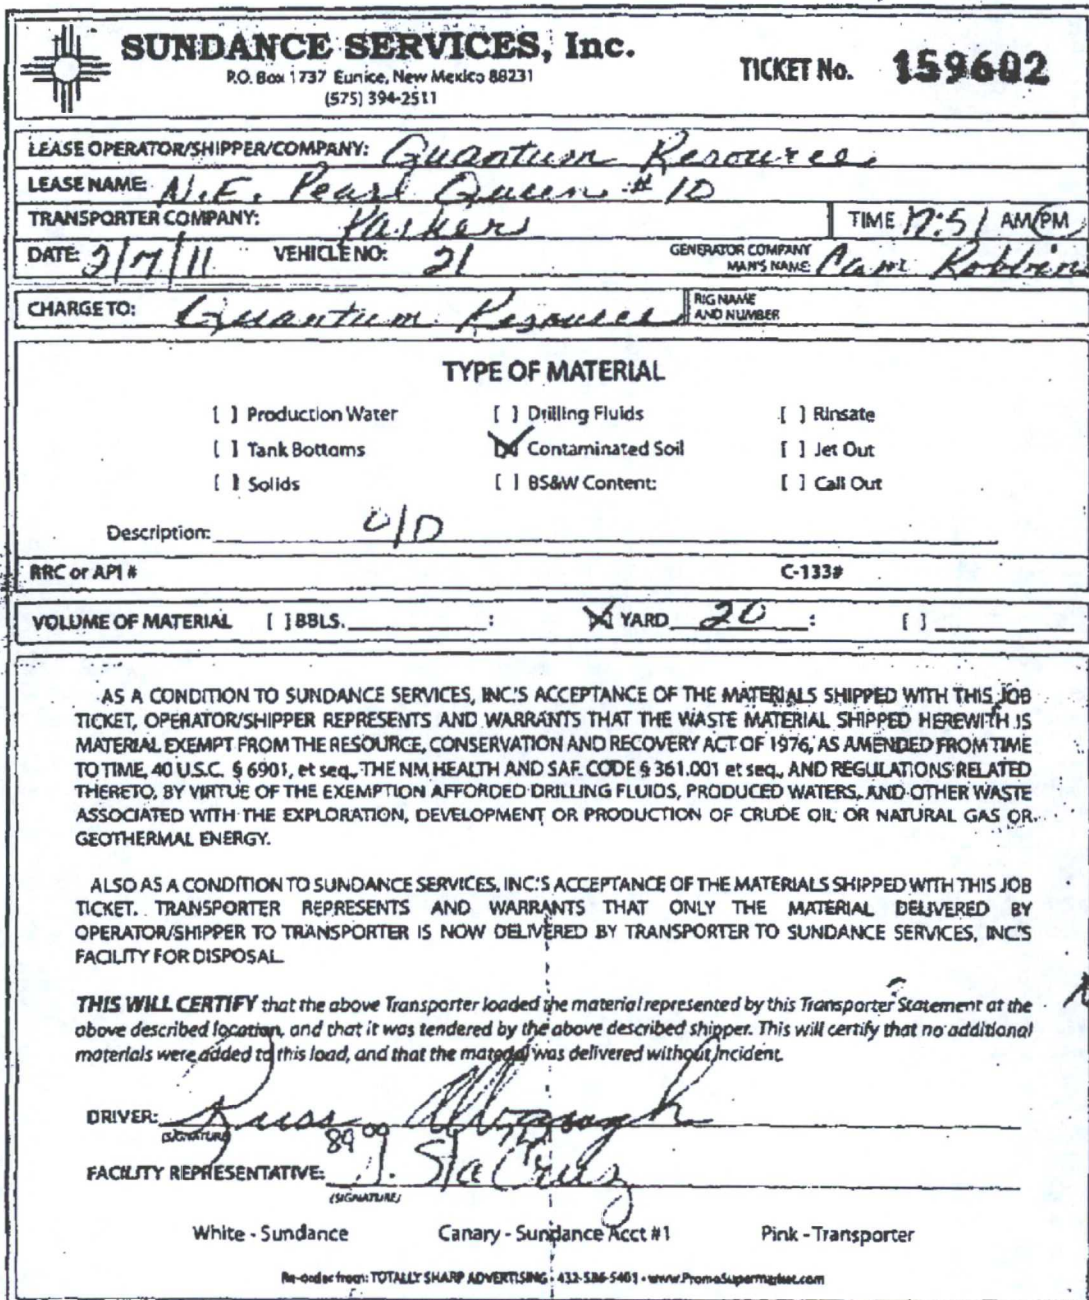 SUNDANCE SERVICES, Inc.
P.O. Box 1737 Eunice, New Mexico 88231
(575) 394-2511
TICKET No. 159602
LEASE OPERATOR/SHIPPER/COMPANY: Quantum Resources
LEASE NAME: N.E. Pearl Queen # 10
TRANSPORTER COMPANY: Parker TIME :51 AM/PM
DATE: /11 VEHICLE NO: 21 GENERATOR COMPANY MAN'S NAME: Robbins
CHARGE TO: Quantum Resources RIG NAME AND NUMBER
TYPE OF MATERIAL
[ ] Production Water [ ] Drilling Fluids [ ] Rinsate
[ ] Tank Bottoms [X] Contaminated Soil [ ] Jet Out
[ ] Solids [ ] BS&W Content: [ ] Call Out
Description: O/D
RRC or API # C-133#
VOLUME OF MATERIAL [ ] BBLS. : [X] YARD 20 : [ ]
AS A CONDITION TO SUNDANCE SERVICES, INC.'S ACCEPTANCE OF THE MATERIALS SHIPPED WITH THIS JOB
TICKET, OPERATOR/SHIPPER REPRESENTS AND WARRANTS THAT THE WASTE MATERIAL SHIPPED HEREWITH IS
MATERIAL EXEMPT FROM THE RESOURCE, CONSERVATION AND RECOVERY ACT OF 1976, AS AMENDED FROM TIME
TO TIME, 40 U.S.C. § 6901, et seq., THE NM HEALTH AND SAF. CODE § 361.001 et seq., AND REGULATIONS RELATED
THERETO, BY VIRTUE OF THE EXEMPTION AFFORDED DRILLING FLUIDS, PRODUCED WATERS, AND OTHER WASTE
ASSOCIATED WITH THE EXPLORATION, DEVELOPMENT OR PRODUCTION OF CRUDE OIL OR NATURAL GAS OR
GEOTHERMAL ENERGY.
ALSO AS A CONDITION TO SUNDANCE SERVICES, INC.'S ACCEPTANCE OF THE MATERIALS SHIPPED WITH THIS JOB
TICKET. TRANSPORTER REPRESENTS AND WARRANTS THAT ONLY THE MATERIAL DELIVERED BY
OPERATOR/SHIPPER TO TRANSPORTER IS NOW DELIVERED BY TRANSPORTER TO SUNDANCE SERVICES, INC'S
FACILITY FOR DISPOSAL.
THIS WILL CERTIFY that the above Transporter loaded the material represented by this Transporter Statement at the
above described location, and that it was tendered by the above described shipper. This will certify that no additional
materials were added to this load, and that the material was delivered without incident.
DRIVER: Russ
(SIGNATURE)
FACILITY REPRESENTATIVE: J. Sta Cruz
(SIGNATURE)
White - Sundance Canary - Sundance Acct #1 Pink - Transporter
Re-order from: TOTALLY SHARP ADVERTISING · 432-586-5401 · www.PromoSupermarket.com